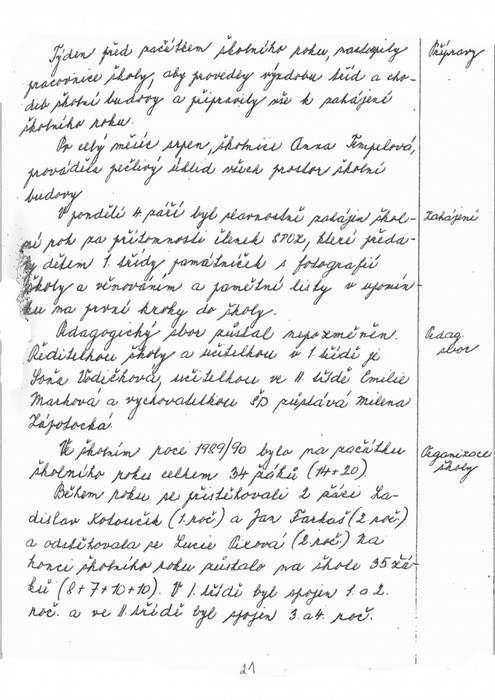 Týden před začátkem školního roku, nastoupily
pracovnice školy, aby provedly výzdobu tříd a cho-
deb školní budovy a připravily vše k zahájení
školního roku.
Po celý měsíc srpen, školnice Anna Timpelová,
prováděla pečlivý úklid všech prostor školní
budovy
V pondělí 4. září byl slavnostně zahájen škol-
ní rok za přítomnosti členek SPOZ, které předa-
ly dětem 1. třídy památníček s fotografií
školy a věnováním a pamětní listy v upomín-
ku na první kroky do školy.
Pedagogický sbor zůstal nepozměněn.
Ředitelkou školy a učitelkou v I třídě je
Soňa Vodičková, učitelkou ve II třídě Emilie
Marková a vychovatelkou ŠD zůstává Milena
Zápotocká
Ve školním roce 1989/90 bylo na začátku
školního roku celkem 34 žáků (14+20).
Během roku se přistěhovali 2 žáci La-
dislav Kotouček (1.roč) a Jan Farkaš (2.roč.)
a odstěhovala se Lucie (2.roč.) Na
konci školního roku zůstalo na škole 35 žá-
ků (8+7+10+10). V I. třídě byl spojen 1. a 2.
roč. a ve II. třídě byl spojen 3. a 4. roč.
Přípravy
Zahájení
Pedag.
sbor
Organizace
školy
21